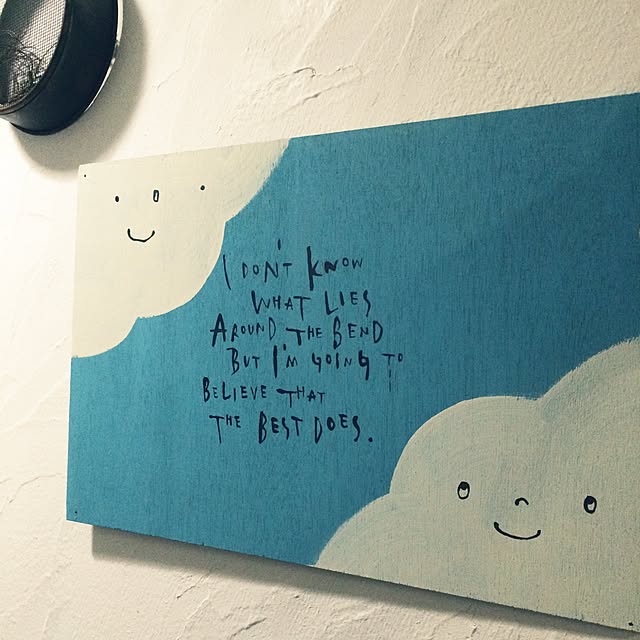 I DON'T KNOW
WHAT LIES
AROUND THE BEND
BUT I'M GOING TO
BELIEVE THAT
THE BEST DOES.